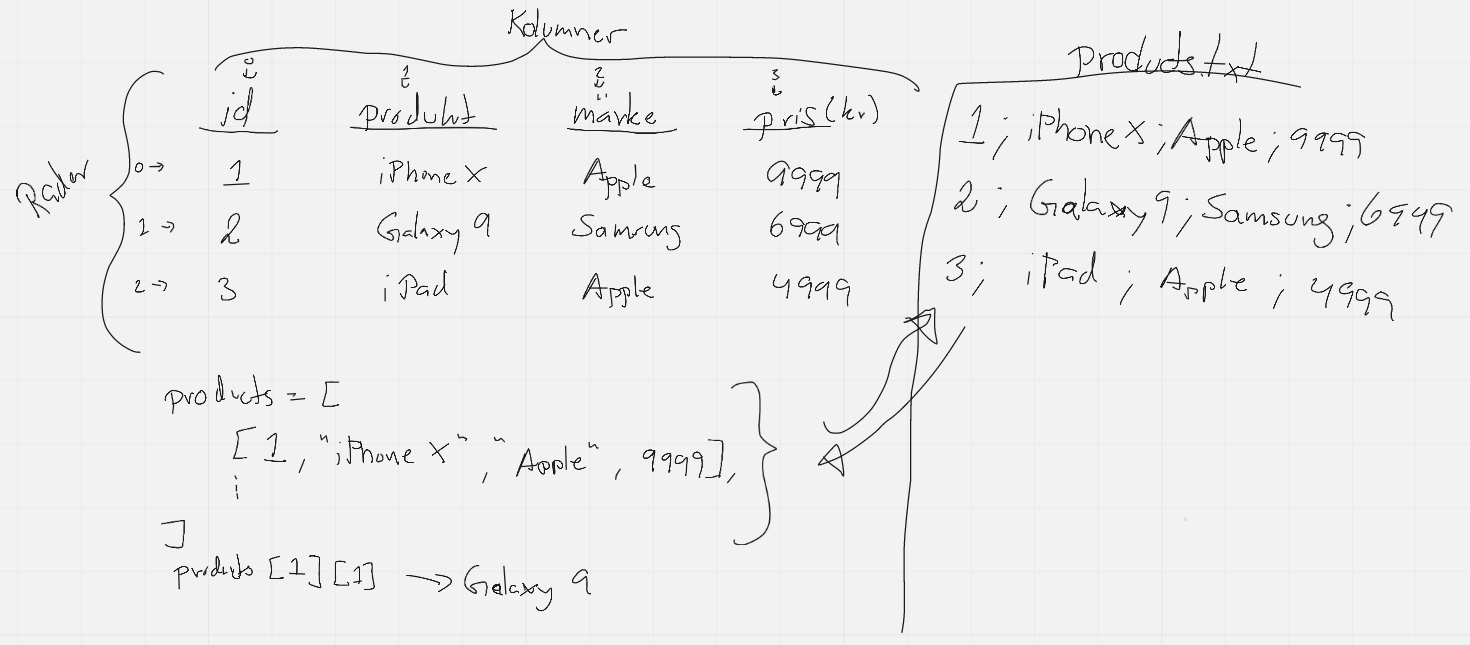 Kolumner
0 1 2 3
id produkt märke pris(kr)
Rader
0 → 1 iPhone X Apple 9999
1 → 2 Galaxy 9 Samsung 6999
2 → 3 iPad Apple 4999
products = [
[ 1, "iPhone X", "Apple", 9999],
⋮
]
products [1][1] → Galaxy 9
products.txt
1; iPhone X; Apple; 9999
2; Galaxy 9; Samsung; 6999
3; iPad; Apple; 4999